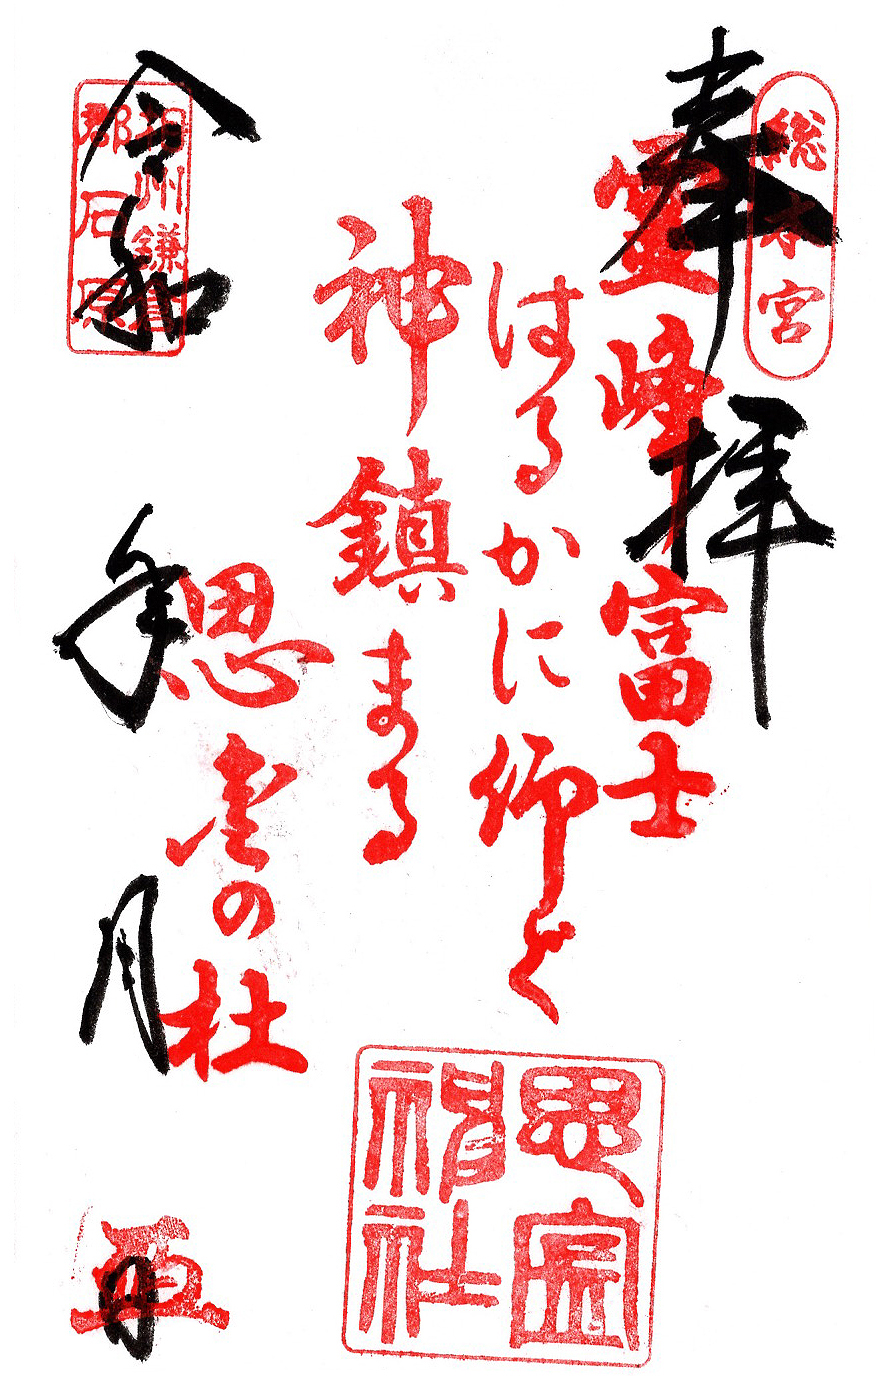 総本宮
奉拝
霊峰富士
はるかに仰ぐ
神鎮まる
思金の杜
思金
神社
相州鎌倉
郡石原
令和 年 月 日